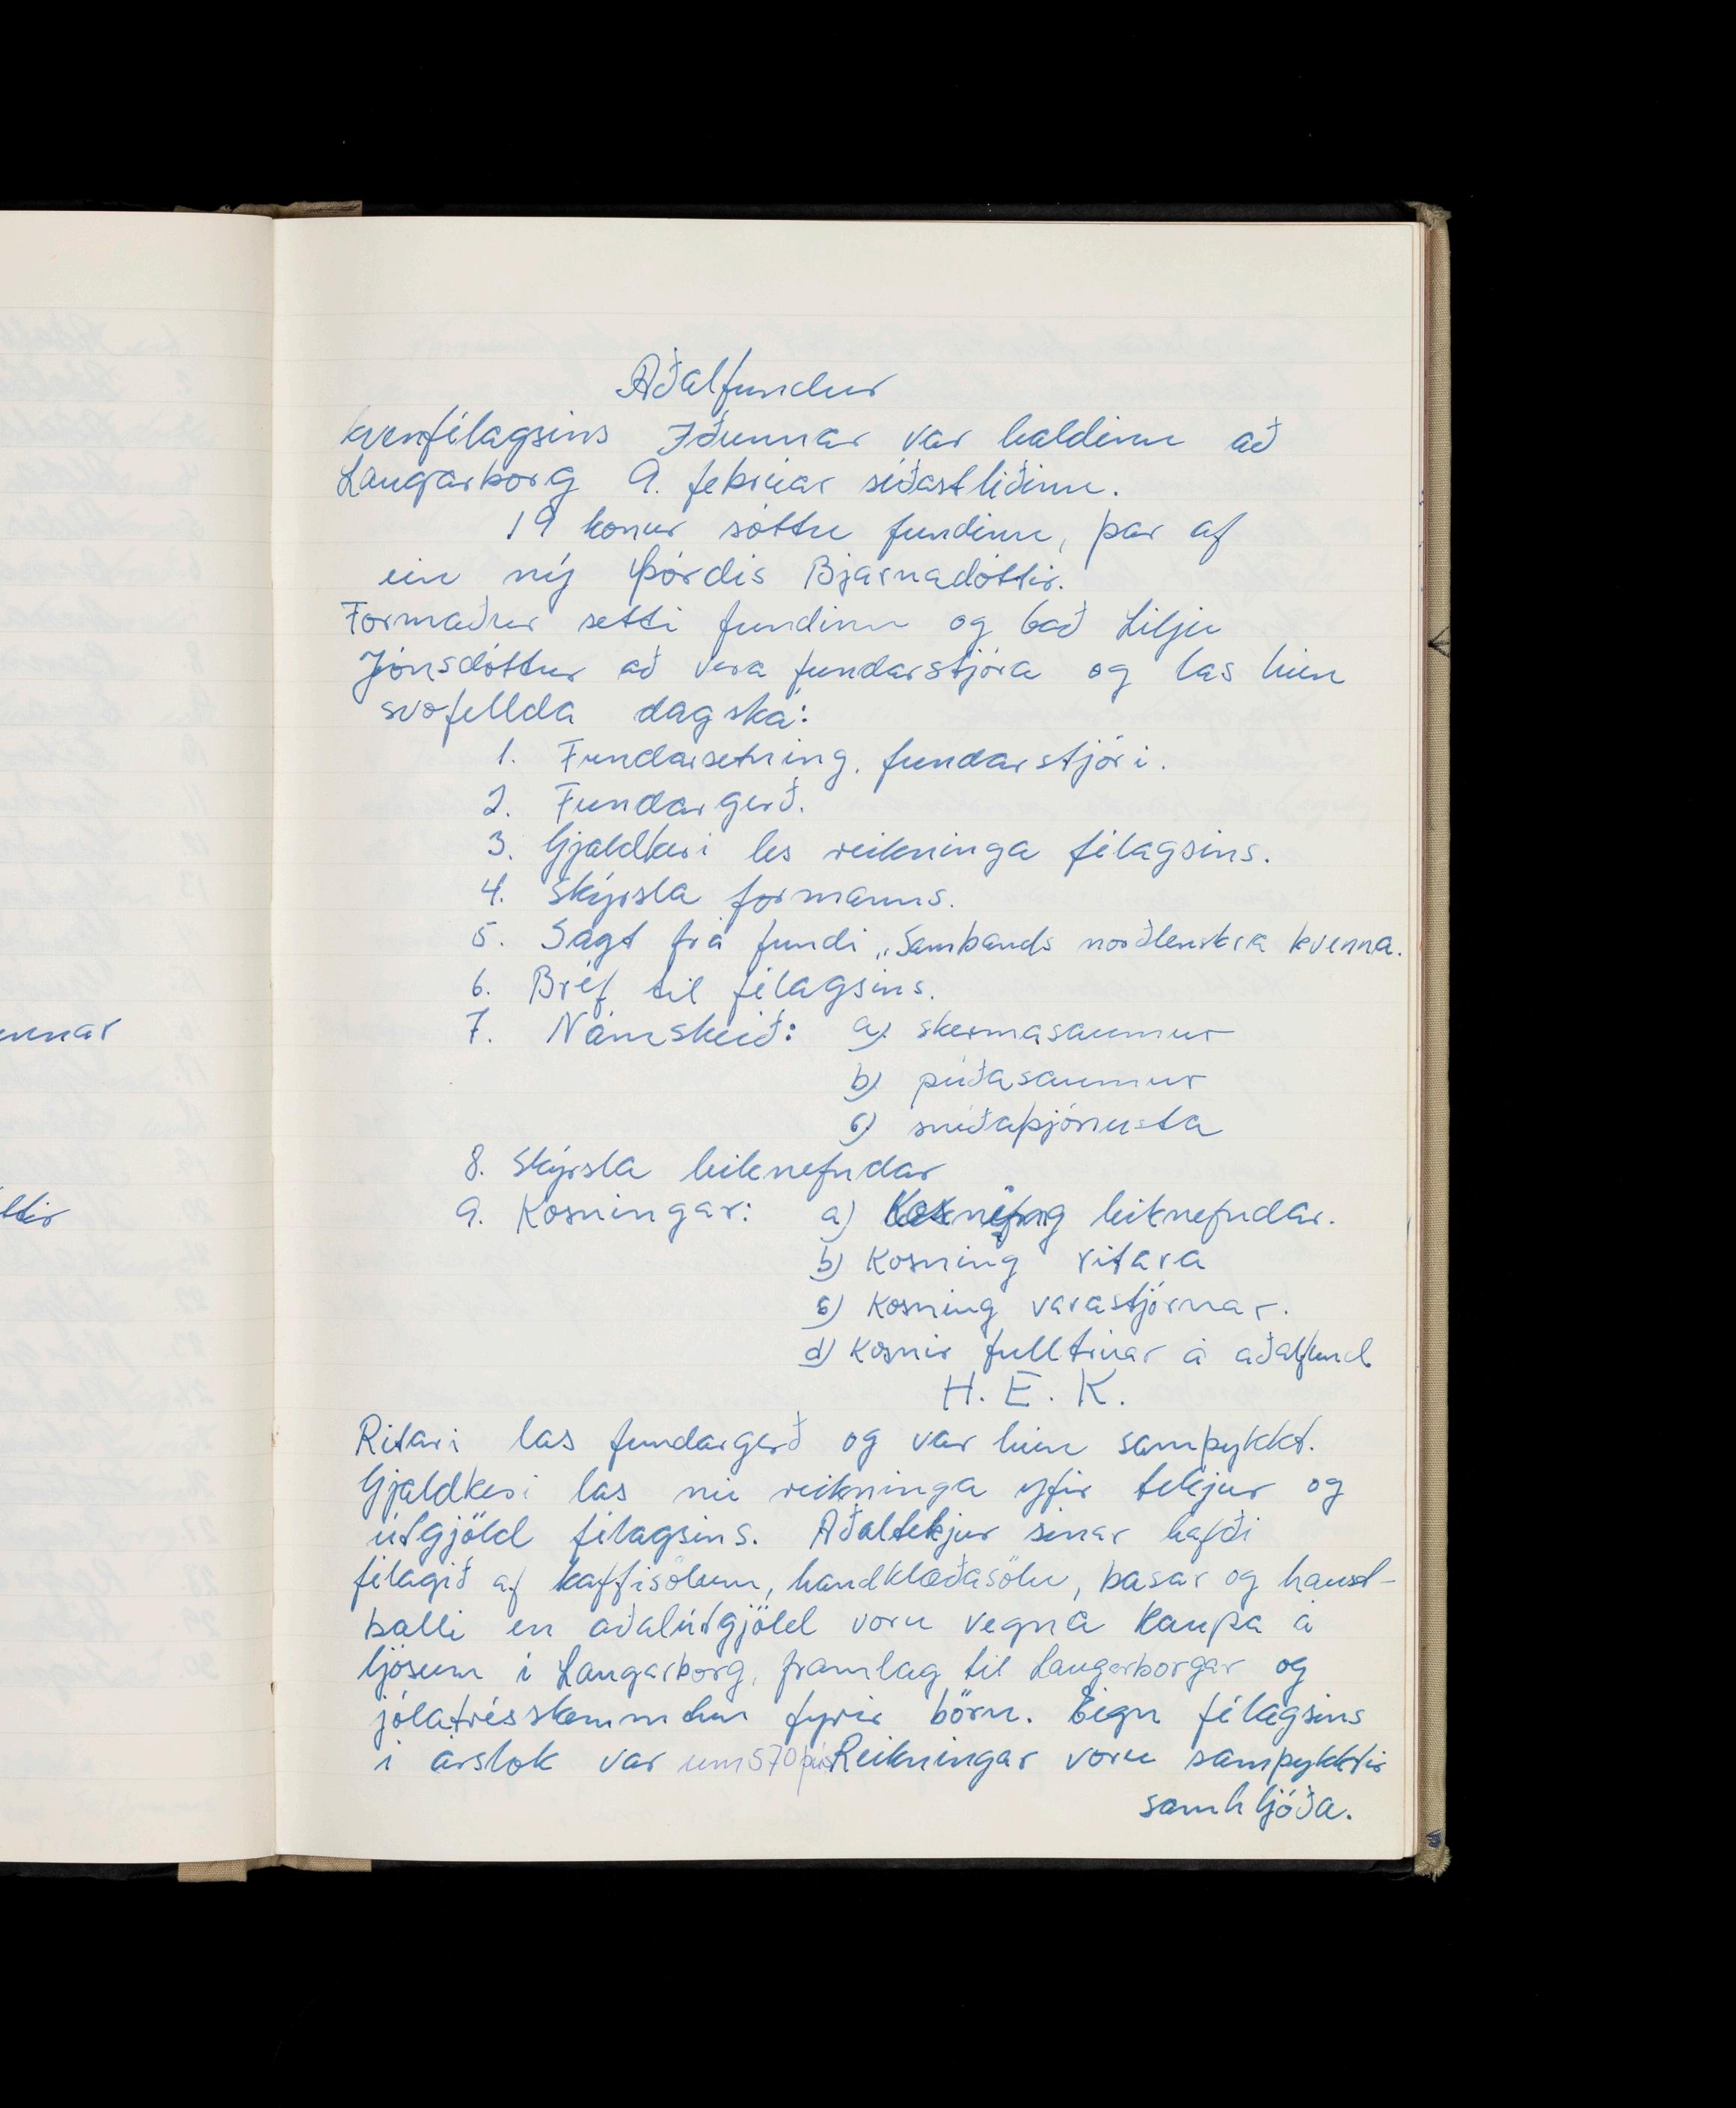 Aðalfundur
kvenfélagsins Iðunnar var haldinn að
Laugarborg 9. febrúar síðastliðinn.
19 konur sóttu fundinn, þar af
ein ný Þórdís Bjarnadóttir.
Formaður setti fundinn og bað Lilju
Jónsdóttur að vera fundarstjóra og las hún
svofellda dagská:
1. Fundarsetning. fundarstjóri.
2. Fundargerð.
3. Gjaldkeri les reikninga félagsins.
4. Skýrsla formanns.
5. Sagt frá fundi „Sambands norðlenskra kvenna.
6. Bréf til félagsins.
7. Námskeið: a) skermasaumur
b) púðasaumur
c) sníðaþjónusta
8. Skýrsla leiknefndar
9. Kosningar: a) Kosning leiknefndar.
b) Kosning ritara
c) Kosning varastjórnar.
d) Kosnir fulltrúar á aðalfund
H. E. K.
Ritari las fundargerð og var hún samþykkt.
Gjaldkeri las nú reikninga yfir tekjur og
útgjöld félagsins. Aðaltekjur sínar hafði
félagið af kaffisölum, handklæðasölu, basar og haust-
balli en aðalútgjöld voru vegna kaupa á
ljósum í Laugarborg, framlag til Laugarborgar og
jólatrésskemmtun fyrir börn. Eign félagsins
í árslok var um 570 þús Reikningar voru samþykktir
samhljóða.
unnar
ttir